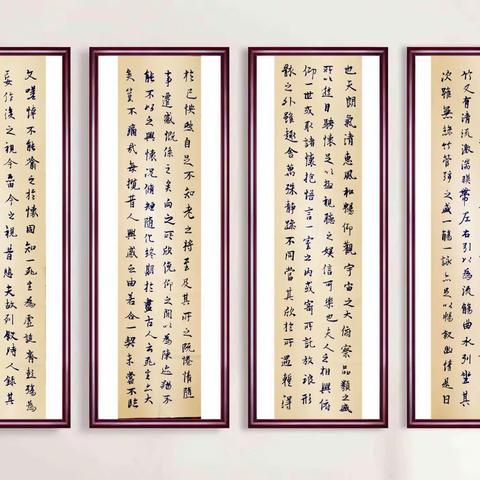 竹又有清流激湍映帶左右引以為流觴曲水列坐其
次雖無絲竹管弦之盛一觴一詠亦足以暢敘幽情是日
也天朗氣清惠風和暢仰觀宇宙之大俯察品類之盛
所以遊目騁懷足以極視聽之娛信可樂也夫人之相與俯
仰一世或取諸懷抱悟言一室之内或寄所託放浪形
骸之外雖趣舍萬殊靜躁不同當其欣於所遇暫得
於己怏然自足不知老之將至及其所之既惓情隨
事遷感慨係之矣向之所欣俛仰之間以為陳迹猶不
能不以之興懷況脩短隨化終期於盡古人云死生亦大
矣豈不痛哉每攬昔人興感之由若合一契未嘗不臨
文嗟悼不能喻之於懷固知一死生為虛誕齊彭殤為
妄作後之視今亦由今之視昔悲夫故列敘時人錄其